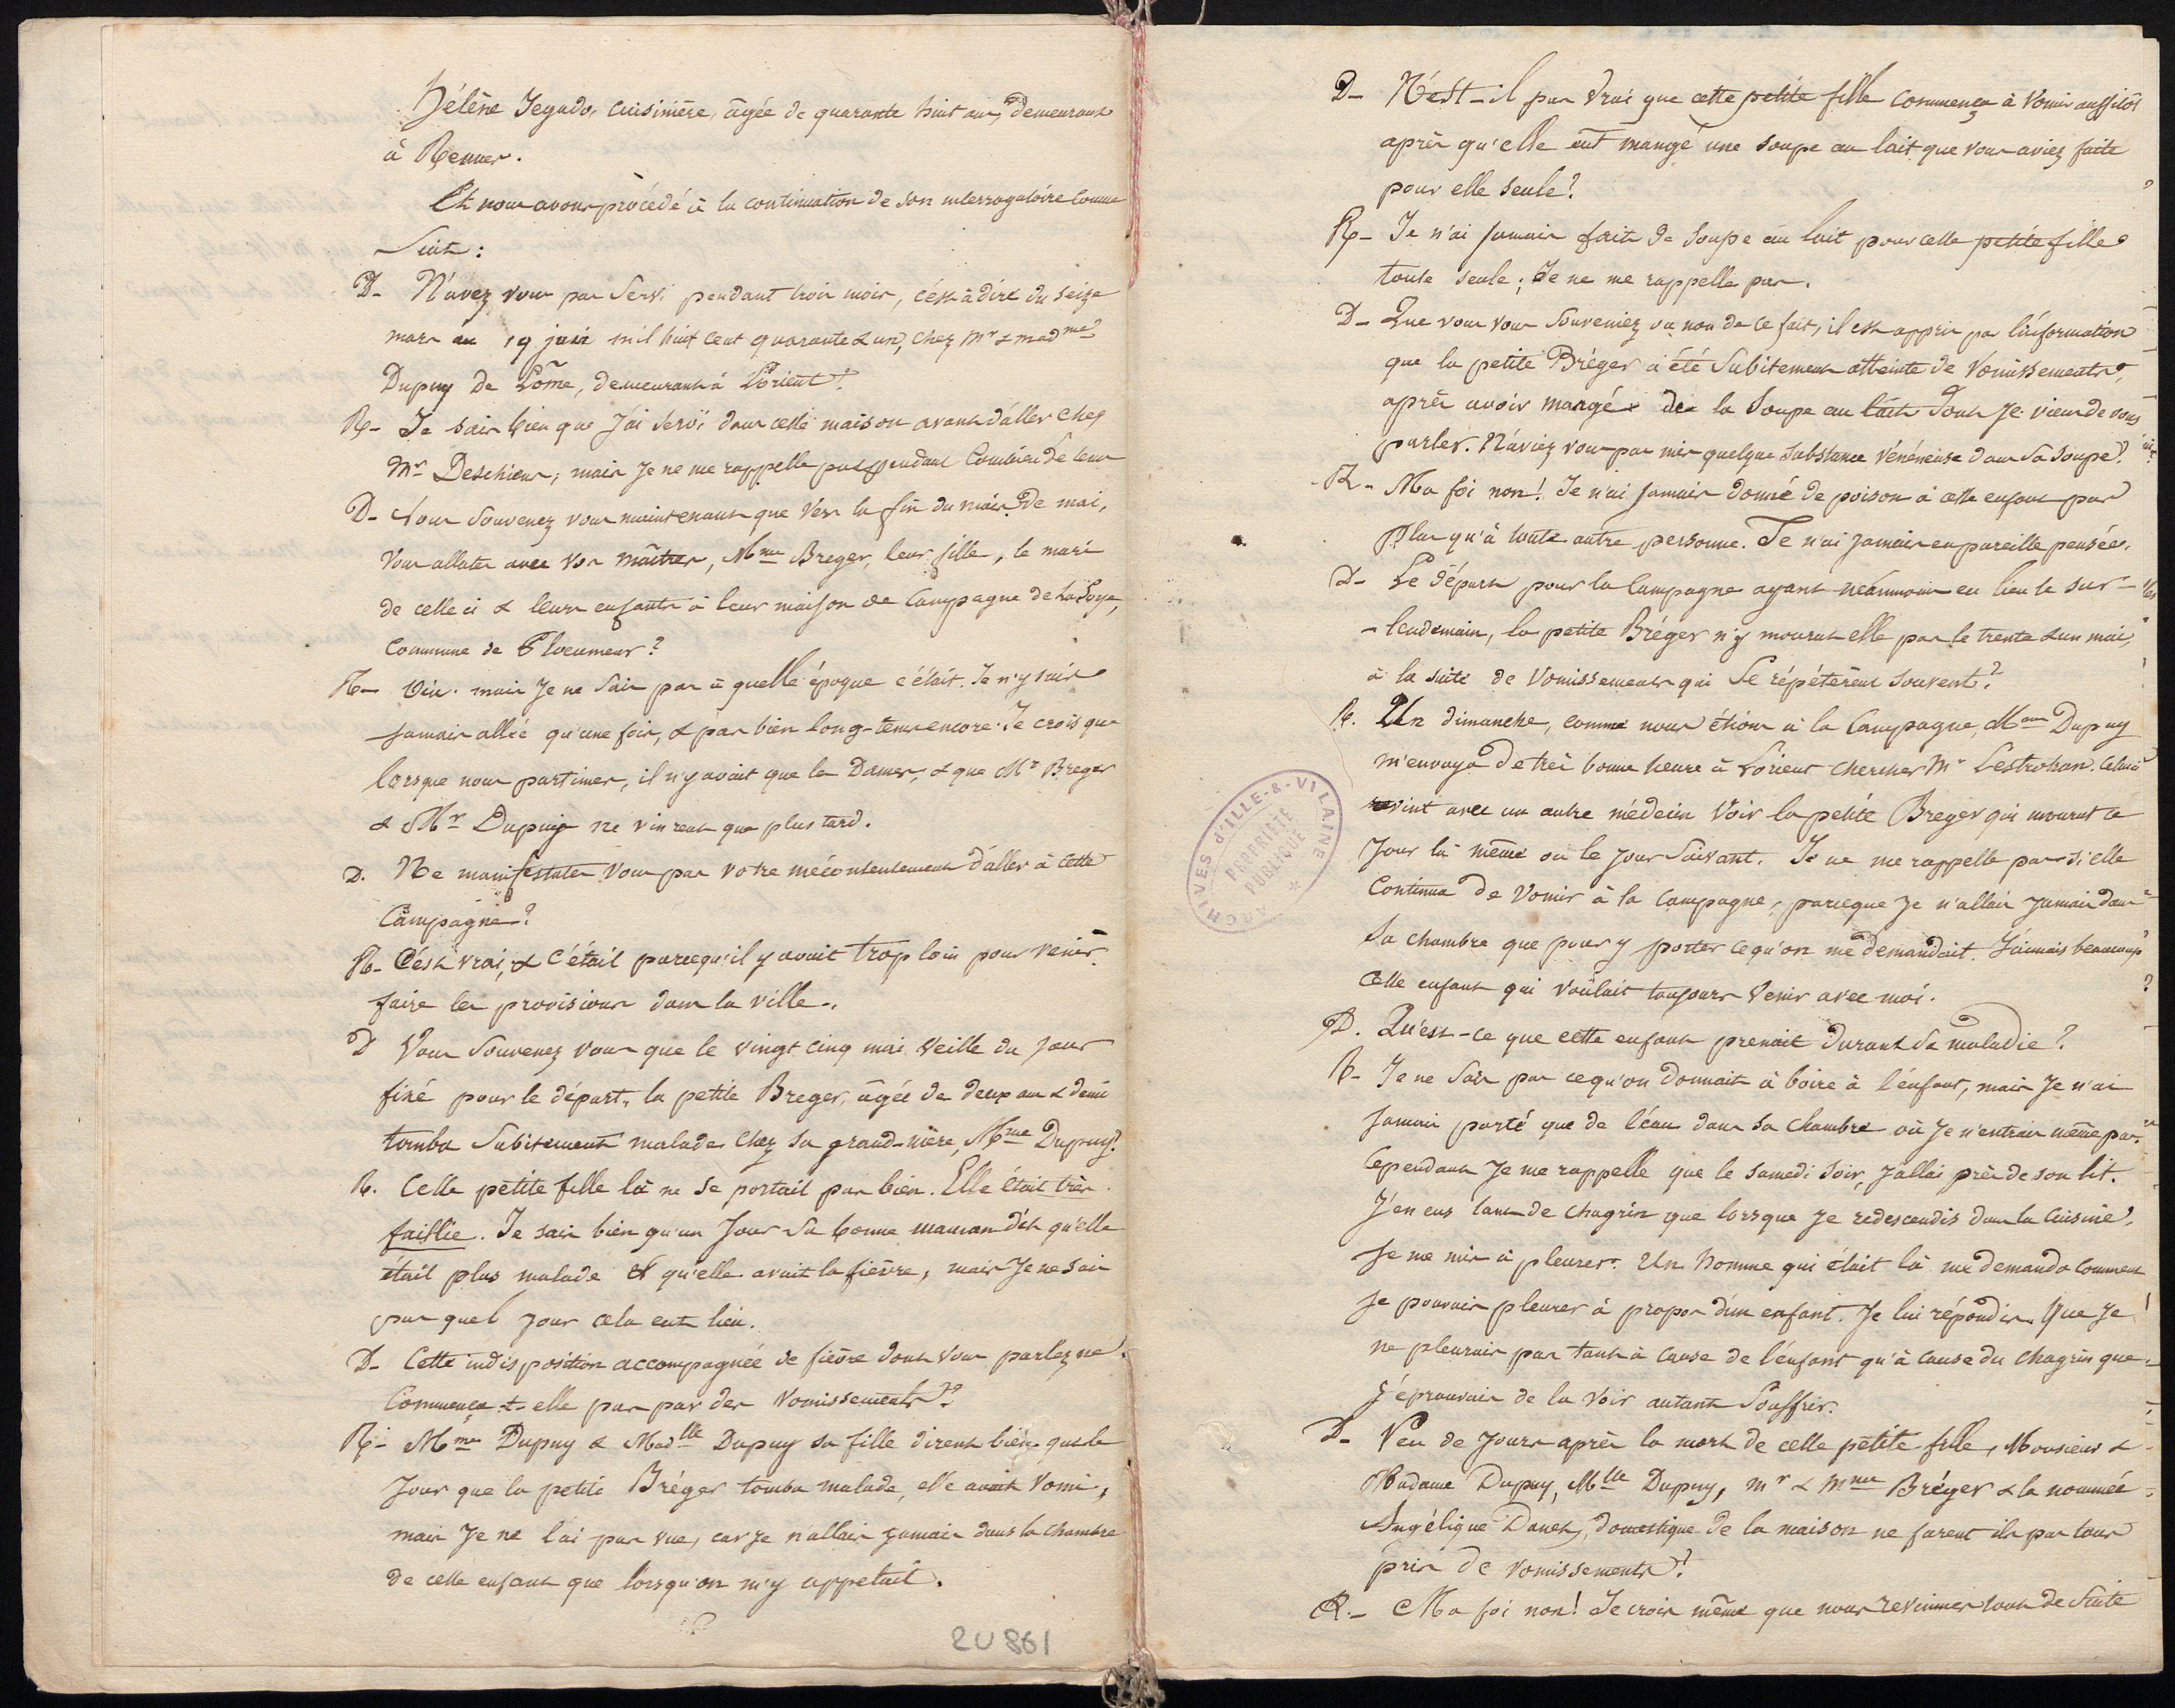 Hélène Jegado, cuisinière, âgée de quarante huit ans, demeurant
à Rennes.
Et nous avons procédé à la continuation de son interrogatoire comme
Suit :
D- N'avez vous pas servi pendant trois mois, c'est à dire du seize
mars au 19 juin mil huit cent quarante & un, chez Mr & madme
Dupuy de Lôme, demeurant à Lorient ?
R- Je sais bien que j'ai servi dans cette maison avant d'aller chez
Mr Deschiens, mais je ne me rappelle pas pendant combien de tems
D- Vous souvenez vous maintenant que vers la fin du mois de mai,
vous allates avec vos maîtres, Mme Breger, leur fille, le mari
de celle ci & leurs enfants à leur maison de campagne de
commune de Ploeumeur ?
R- Oui. mais je ne sais pas à quelle époque c'était. Je n'y suis
jamais allée qu'une fois, & pas bien long-tems encore. Je crois que
lorsque nous partimes, il n'y avait que les Dames, & que Mr Breger
& Mr Dupuy ne vinrent que plus tard.
D. Ne manifestates vous pas votre mécontentement d'aller à cette
Campagne ?
R- C'est vrai, & c'était parcequ'il y avait trop loin pour venir
faire les provisions dans la ville.
D Vous souvenez vous que le vingt cinq mai veille du jour
fixé pour le départ, la petite Breger, âgée de deux ans & demi
tomba subitement malade chez sa grand-mère, Mme Dupuy ?
R. Cette petite fille là ne se portait pas bien. Elle était très
faillie. Je sais bien qu'un jour sa bonne maman dit qu'elle
était plus malade & qu'elle avait la fièvre, mais je ne sais
pas quel jour cela eut lieu.
D- Cette indisposition accompagnée de fièvre dont vous parlez ne
commença-t-elle pas par des vomissements ?
R- Mme Dupuy & Madlle Dupuy sa fille dirent bien que le
jour que la petite Bréger tomba malade, elle avait vomi,
mais je ne l'ai pas vue, car je n'allais jamais dans la chambre
de cette enfant que lorsqu'on m'y appelait.
2U861
D- N'est-il pas vrai que cette petite fille commença à vomir aussitôt
après qu'elle eut mangé une soupe au lait que vous aviez faite
pour elle seule ?
R- Je n'ai jamais fait de soupe au lait pour cette petite fille
toute seule ; Je ne me rappelle pas.
D- Que vous vous souveniez ou non de ce fait, il est appris par l'information
que la petite Bréger a été subitement atteinte de vomissements,
après avoir mangé de la soupe au lait dont je viens de vous
parler. N'aviez vous pas mis quelque substance vénéneuse dans sa soupe ?
R- Ma foi non ! Je n'ai jamais donné de poison à cette enfant pas
plus qu'à toute autre personne. Je n'ai jamais eu pareille pensée.
D- Le départ pour la campagne ayant néanmoins eu lieu le sur-
-lendemain, la petite Bréger n'y mourut elle pas le trente & un mai,
à la suite de vomissements qui se répétèrent souvent ?
R. Un dimanche, comme nous étions à la campagne, Mme Dupuy
m'envoya de très bonne heure à Lorient chercher Mr Lestrohan. Celui ci
revint avec un autre médecin voir la petite Breger qui mourut ce
jour là même ou le jour suivant. Je ne me rappelle pas si elle
continua de vomir à la campagne, parceque je n'allais jamais dans
sa chambre que pour y porter ce qu'on me demandait. J'aimais beaucoup
cette enfant qui voulait toujours venir avec moi.
D. Qu'est-ce que cette enfant prenait durant sa maladie ?
R- Je ne sais pas ce qu'on donnait à boire à l'enfant, mais je n'ai
jamais porté que de l'eau dans sa chambre où je n'entrais même pas.
Cependant je me rappelle que le samedi soir, j'allai près de son lit.
J'en eus tant de chagrin que lorsque je redescendis dans la cuisine,
je me mis à pleurer. Un homme qui était là me demanda comment
je pouvais pleurer à propos d'un enfant. Je lui répondis que je
ne pleurais pas tant à cause de l'enfant qu'à cause du chagrin que
j'éprouvais de la voir autant souffrir.
D- Peu de jours après la mort de cette petite fille, Monsieur &
Madame Dupuy, Mlle Dupuy, Mr & Mme Bréger & la nommée
Angélique Danet, domestique de la maison ne furent ils pas tous
pris de vomissements ?
R.- Ma foi non ! Je crois même que nous revinmes tout de suite
ARCHIVES D'ILLE-&-VILAINE
PROPRIÉTÉ
PUBLIQUE